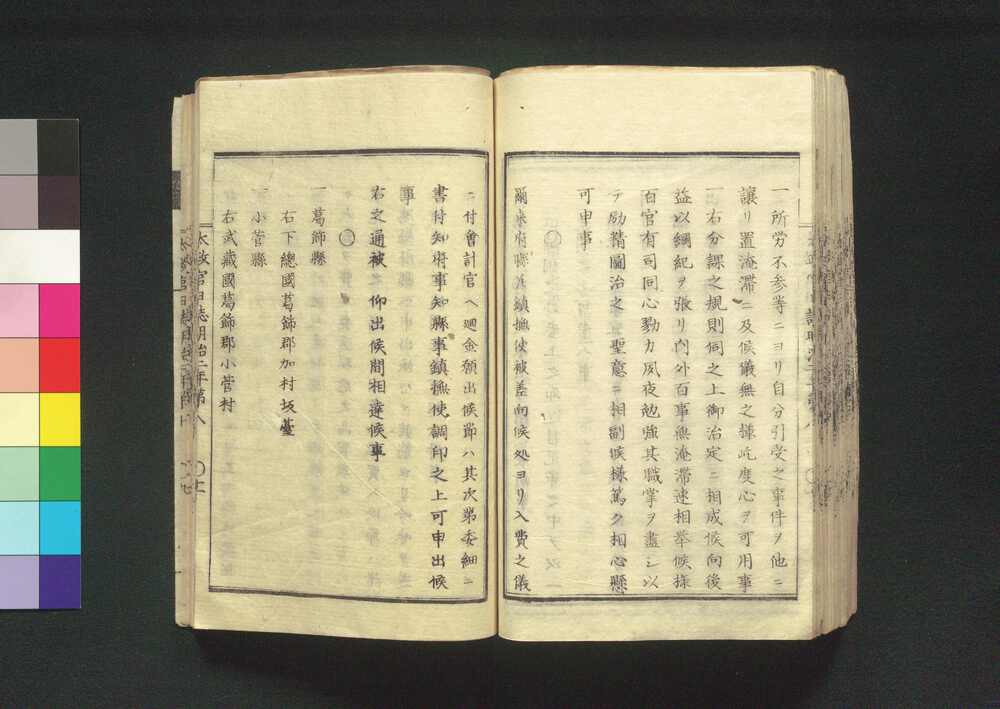 一所労不参等ニヨリ自分引受之事件ヲ他ニ
譲リ置淹滞ニ及候儀無之様屹度心ヲ可用事
一右分課之規則伺之上御治定ニ相成候向後
益以綱紀ヲ張リ内外百事無淹滞速相挙候様
百官有司同心勠力夙夜勉強其職掌ヲ盡シ以
テ励精圖治之聖意ニ相副候様篤ク相心懸
可申事
〇
爾来府縣並鎮撫使被差向候処ヨリ入費之儀
ニ付會計官ヘ廻金願出候節ハ其次第委細ニ
書付知府事知縣事鎮撫使調印之上可申出候
事
右之通被 仰出候間相達候事
〇
一葛飾縣
右下總國葛飾郡加村坂臺
一小菅縣
右武蔵國葛飾郡小菅村
太政官日誌明治二年第八
〇七